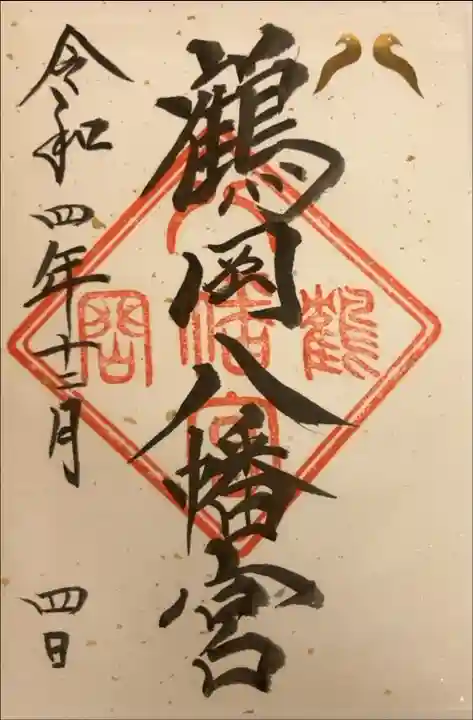 鶴岡八幡宮
令和四年十二月
四日
鶴岡八幡宮